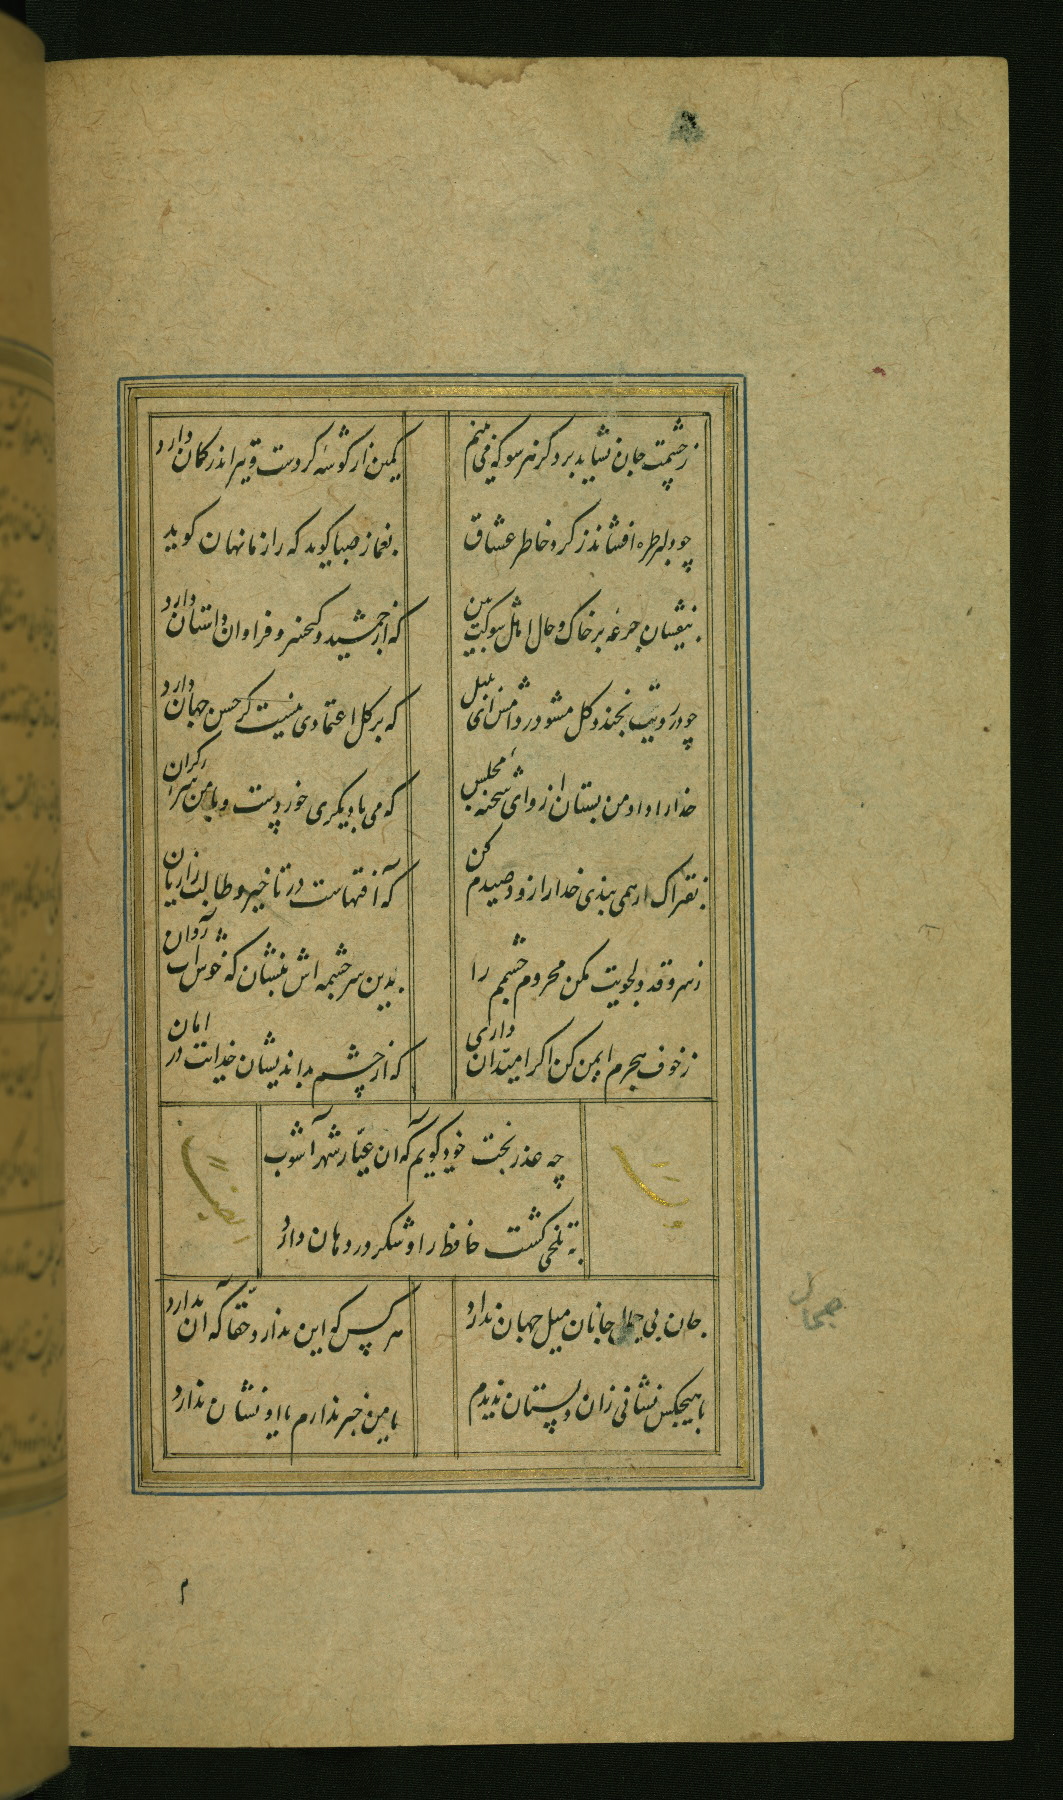 ز چشمت جان نشاید برد کز هر سو که می بینم
کمین از گوشه کردست و تیر اندر کمان دارد
چو دام طره افشاند ز کرد خاطر عشاق
بغماز صبا کوید که راز ما نهان کوید
بیفشان جرعه بر خاک و حال اهل شوکت بین
که از جمشید و کیخسرو فراوان داستان دارد
چو در رویت بخندد کل مشو در دامش ای بلبل
که بر کل اعتمادی نیست کر حسن جهان دارد
خدا را داد من بستان ازو ای شحنه مجلس
که می با دیکری خوردست و با من سر کران
بفتراک ار همی بندی خدا را زود صیدم کن
که آفتهاست در تاخیر و طالب را زیان
ز سرو قد دلجویت مکن محروم چشمم را
بدین سرچشمه اش بنشان که خوش آب روان
ز خوف هجرم ایمن کن اکر امید آن داری
که از چشم بداندیشان خدایت در امان
چه عذر بخت خود کویم که آن عیار شهر آشوب
به تلخی کشت حافظ را و شکر در دهان دارد
جان بی جمال جانان میل جهان ندارد
هر کس که این ندارد حقا که آن ندارد
با هیچکس نشانی زان دلستان ندیدم
یا من خبر ندارم یا او نشان ندارد